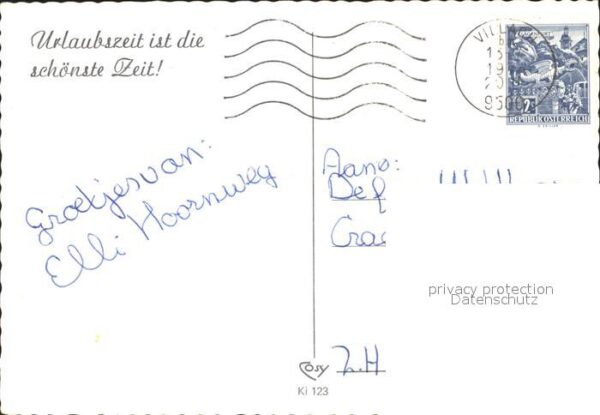 Urlaubszeit ist die
schönste Zeit!
VILLA
9500
2S
REPUBLIK ÖSTERREICH
Groetjes van:
Elli Hoornweg
Aano:
privacy protection
Datenschutz
Cosy
Ki 123
Z.H